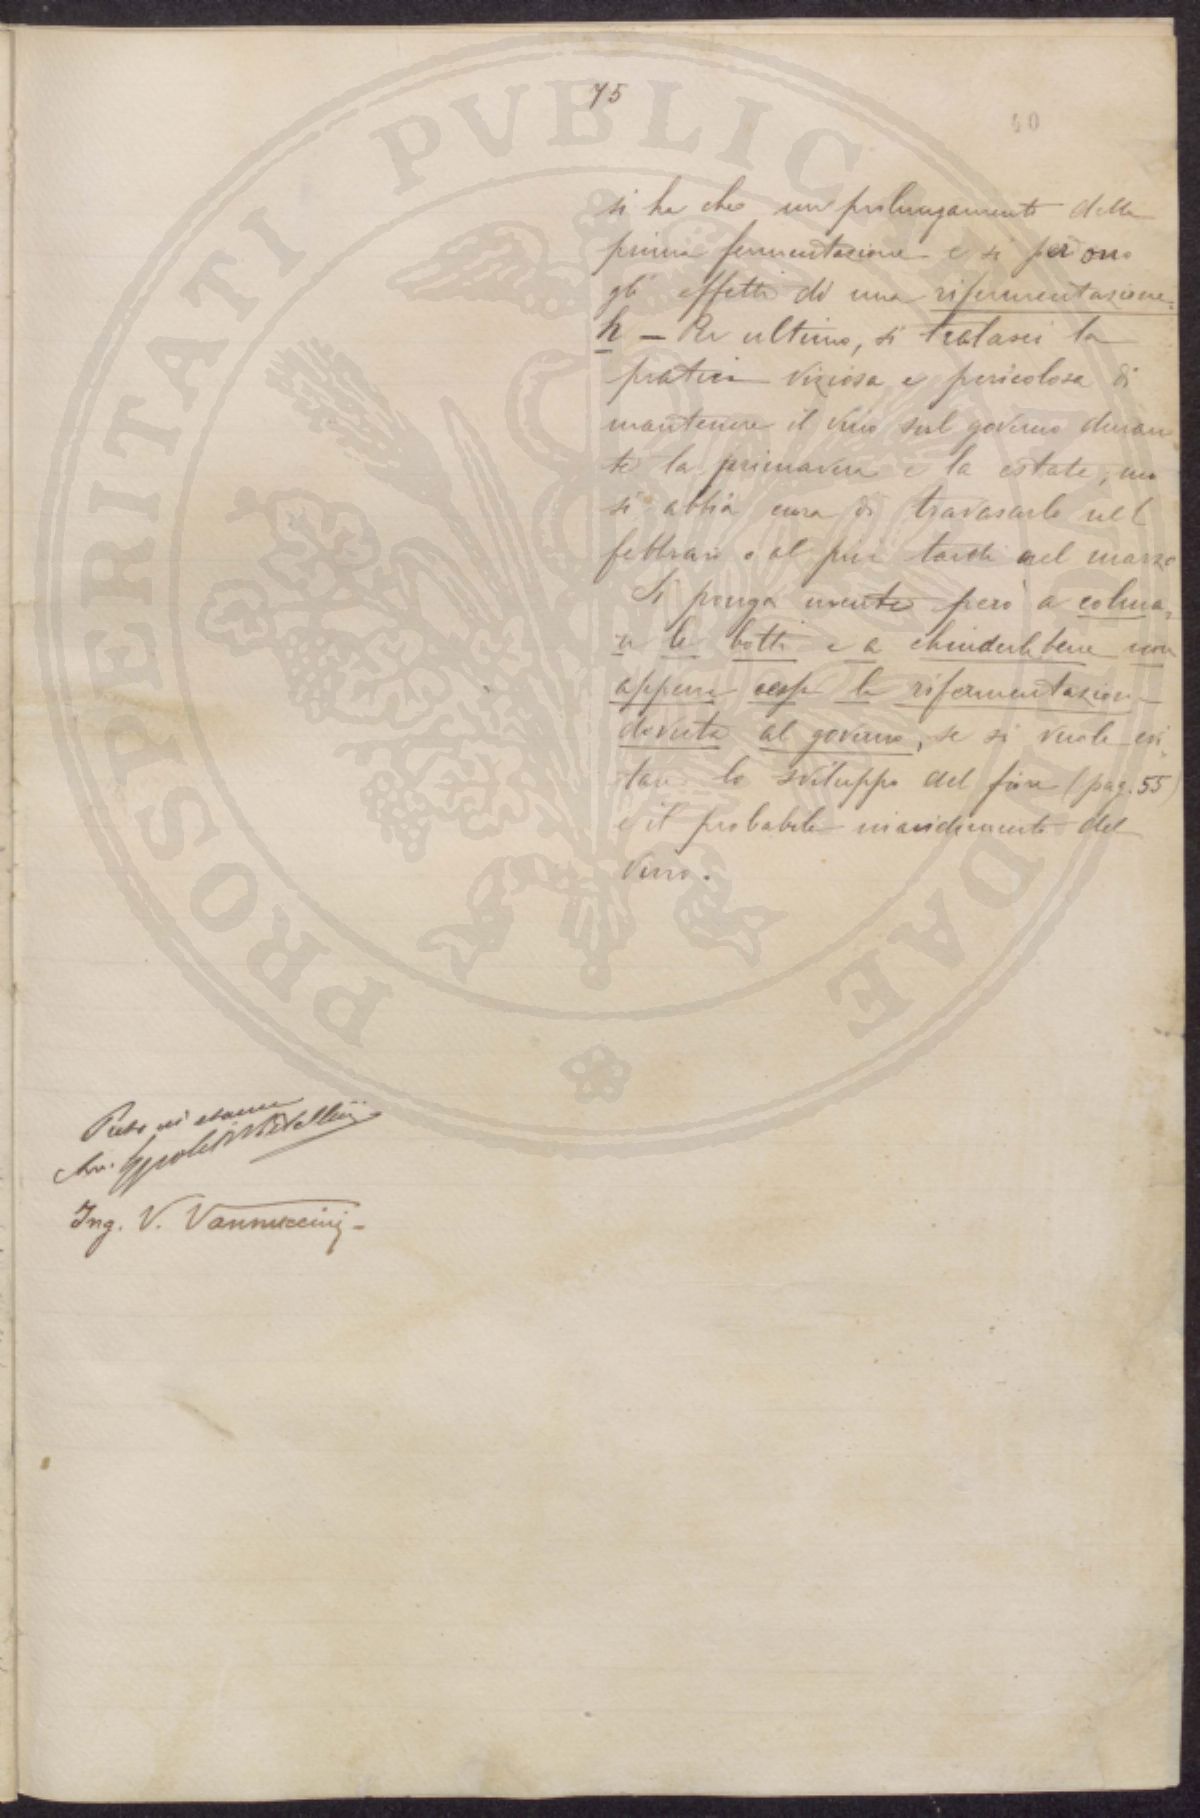 75
40
si ha che un prolungamento della
prima fermentazione e si perdono
gli effetti di una rifermentazione.
h — Per ultimo, si tralasci la
pratica viziosa e pericolosa di
mantenere il vino sul governo duran
te la primavera e la estate, ma
si abbia cura di travasarlo nel
febbraio o al più tardi nel marzo
Si ponga mente però a colma,
re le botti e a chiuderle bene non
appena cessa la rifermentazione
dovuta al governo, se si vuole evi,
tare lo sviluppo del fiore (pag. 55)
e il probabile inacidimento del
vino.
Ing. V. Vannuccini
PROSPERITATI PVBLICAE AVGENDAE